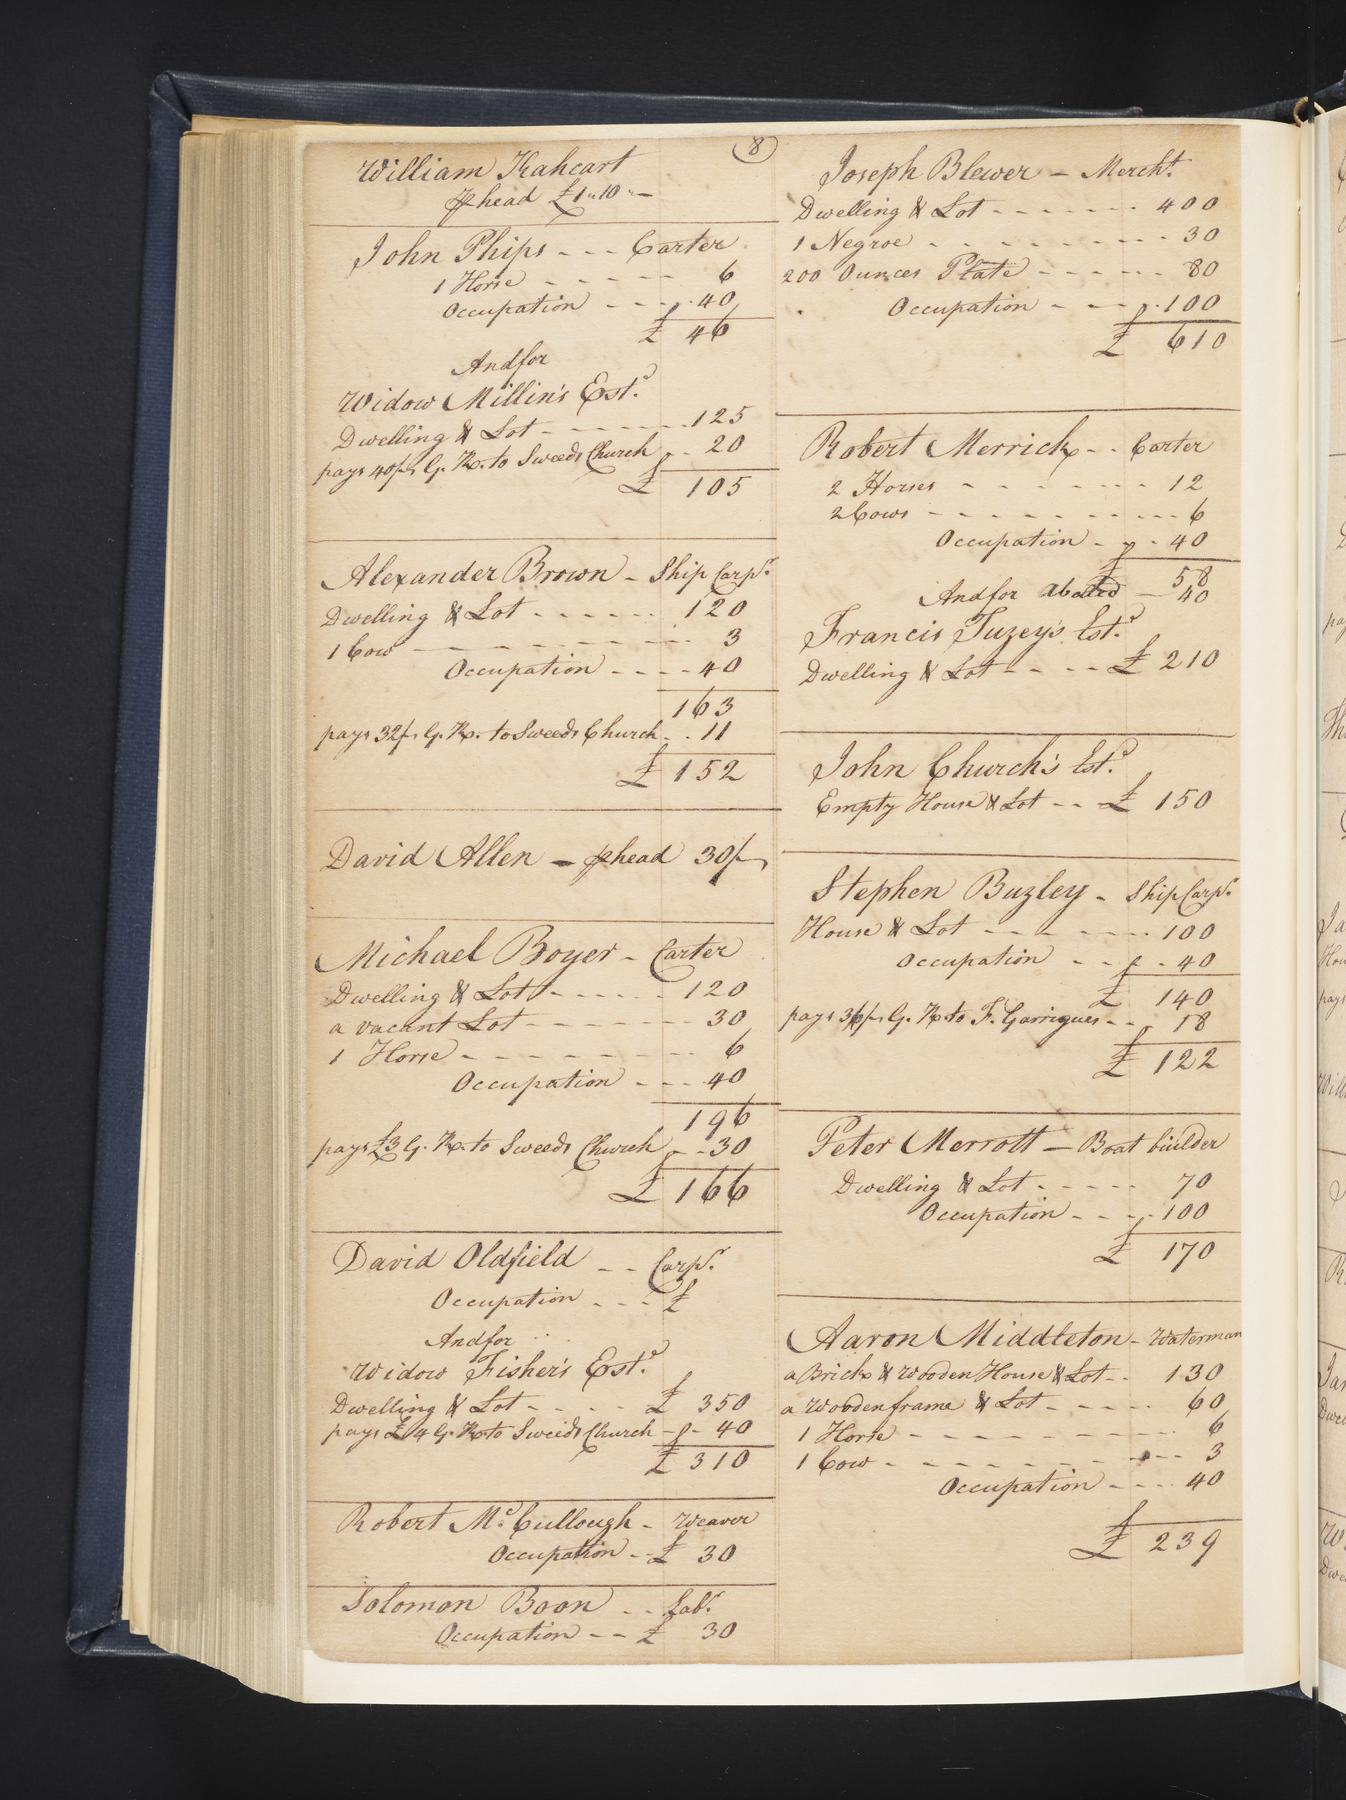 8
William Kahcart
⅌ head £1"10"–
John Phips - - - Carter
1 Horse - - - - - 6
Occupation - - - - 40
£ 46
And for
Widow Millin's Est.
Dwelling & Lot - - - - - - 125
pays 40/ G. R. to Sweeds Church - - 20
£ 105
Alexander Brown - Ship Carpr.
Dwelling & Lot - - - - - - 120
1 Cow - - - - - - - - 3
Occupation - - - - 40
163
pays 32/ G. R. to Sweeds Church - - 11
£ 152
David Allen - ⅌ head 30/
Michael Boyer - Carter
Dwelling & Lot - - - - - - 120
a vacant Lot - - - - - - - 30
1 Horse - - - - - - - - 6
Occupation - - - - 40
196
pays £3 G. R. to Sweeds Church - - 30
£ 166
David Oldfield - - Carpr.
Occupation - - - £
And for
Widow Fisher's Est.
Dwelling & Lot - - - - £ 350
pays £4 G. R. to Sweeds Church - - 40
£ 310
Robert Mc.Cullough - Weaver
Occupation - - £ 30
Solomon Boon - - Labr.
Occupation - - £ 30
Joseph Blewer - Mercht.
Dwelling & Lot - - - - - - - 400
1 Negroe - - - - - - - - - 30
200 Ounces Plate - - - - - - 80
Occupation - - - - 100
£ 610
Robert Merrick - - Carter
2 Horses - - - - - - - 12
2 Cows - - - - - - - - - 6
Occupation - - - 40
£ 58
And for abated - 40
Francis Tuzey's Est.
Dwelling & Lot - - - - £ 210
John Church's Est.
Empty House & Lot - - £ 150
Stephen Buzley - Ship Carpr.
House & Lot - - - - - - - 100
Occupation - - - - 40
£ 140
pays 36/ G. R. to F. Garrigues - - 18
£ 122
Peter Merrott - Boat builder
Dwelling & Lot - - - - - 70
Occupation - - - - 100
£ 170
Aaron Middleton - Waterman
a Brick & Wooden House & Lot - - 130
a Wooden frame & Lot - - - - 60
1 Horse - - - - - - - - - 6
1 Cow - - - - - - - - - 3
Occupation - - - - 40
£ 239